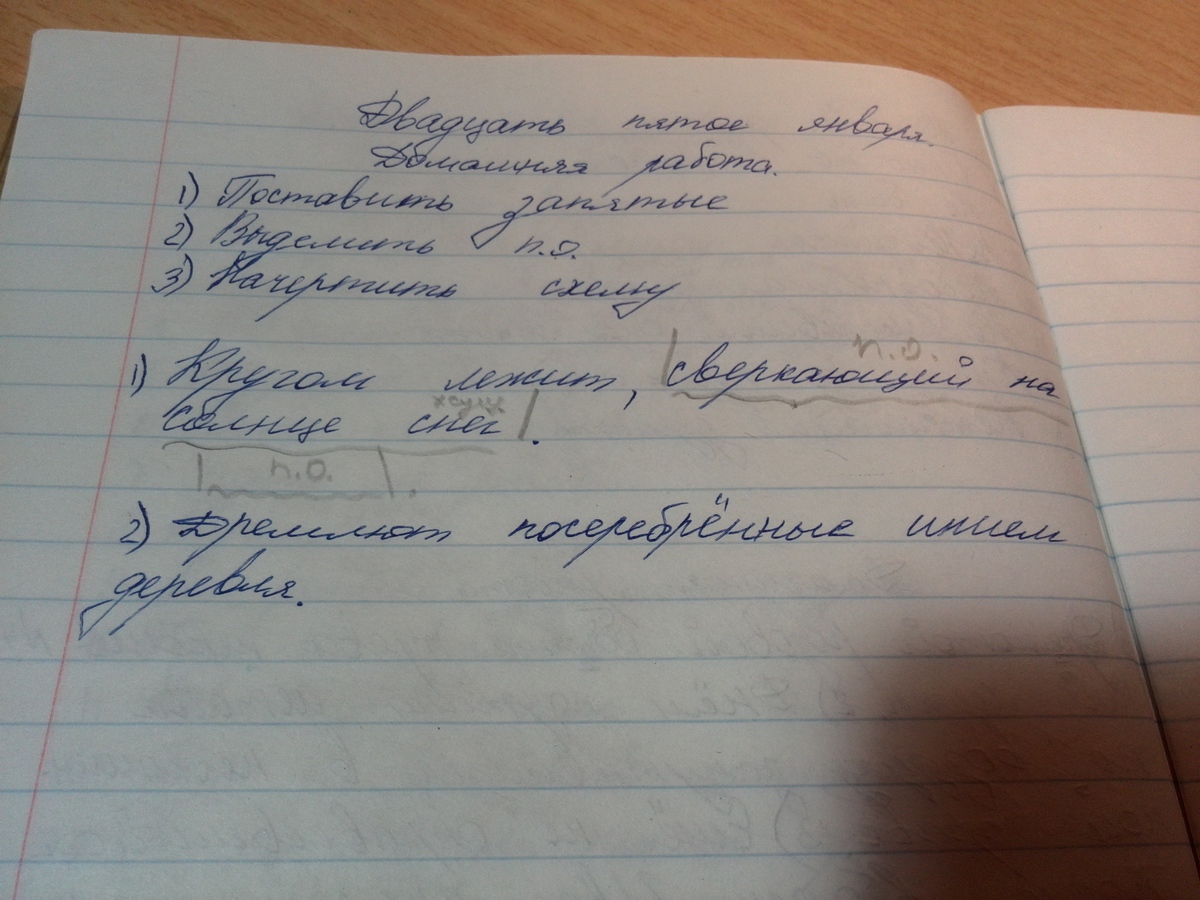 Двадцать пятое января.
Домашняя работа.
1) Поставить запятые
2) Выделить п.о.
3) Начертить схему
п.о.
1) Кругом лежит, |сверкающий на
солнце снег|.
|п.о.|.
2) Дремлют посеребрённые инием
деревья.